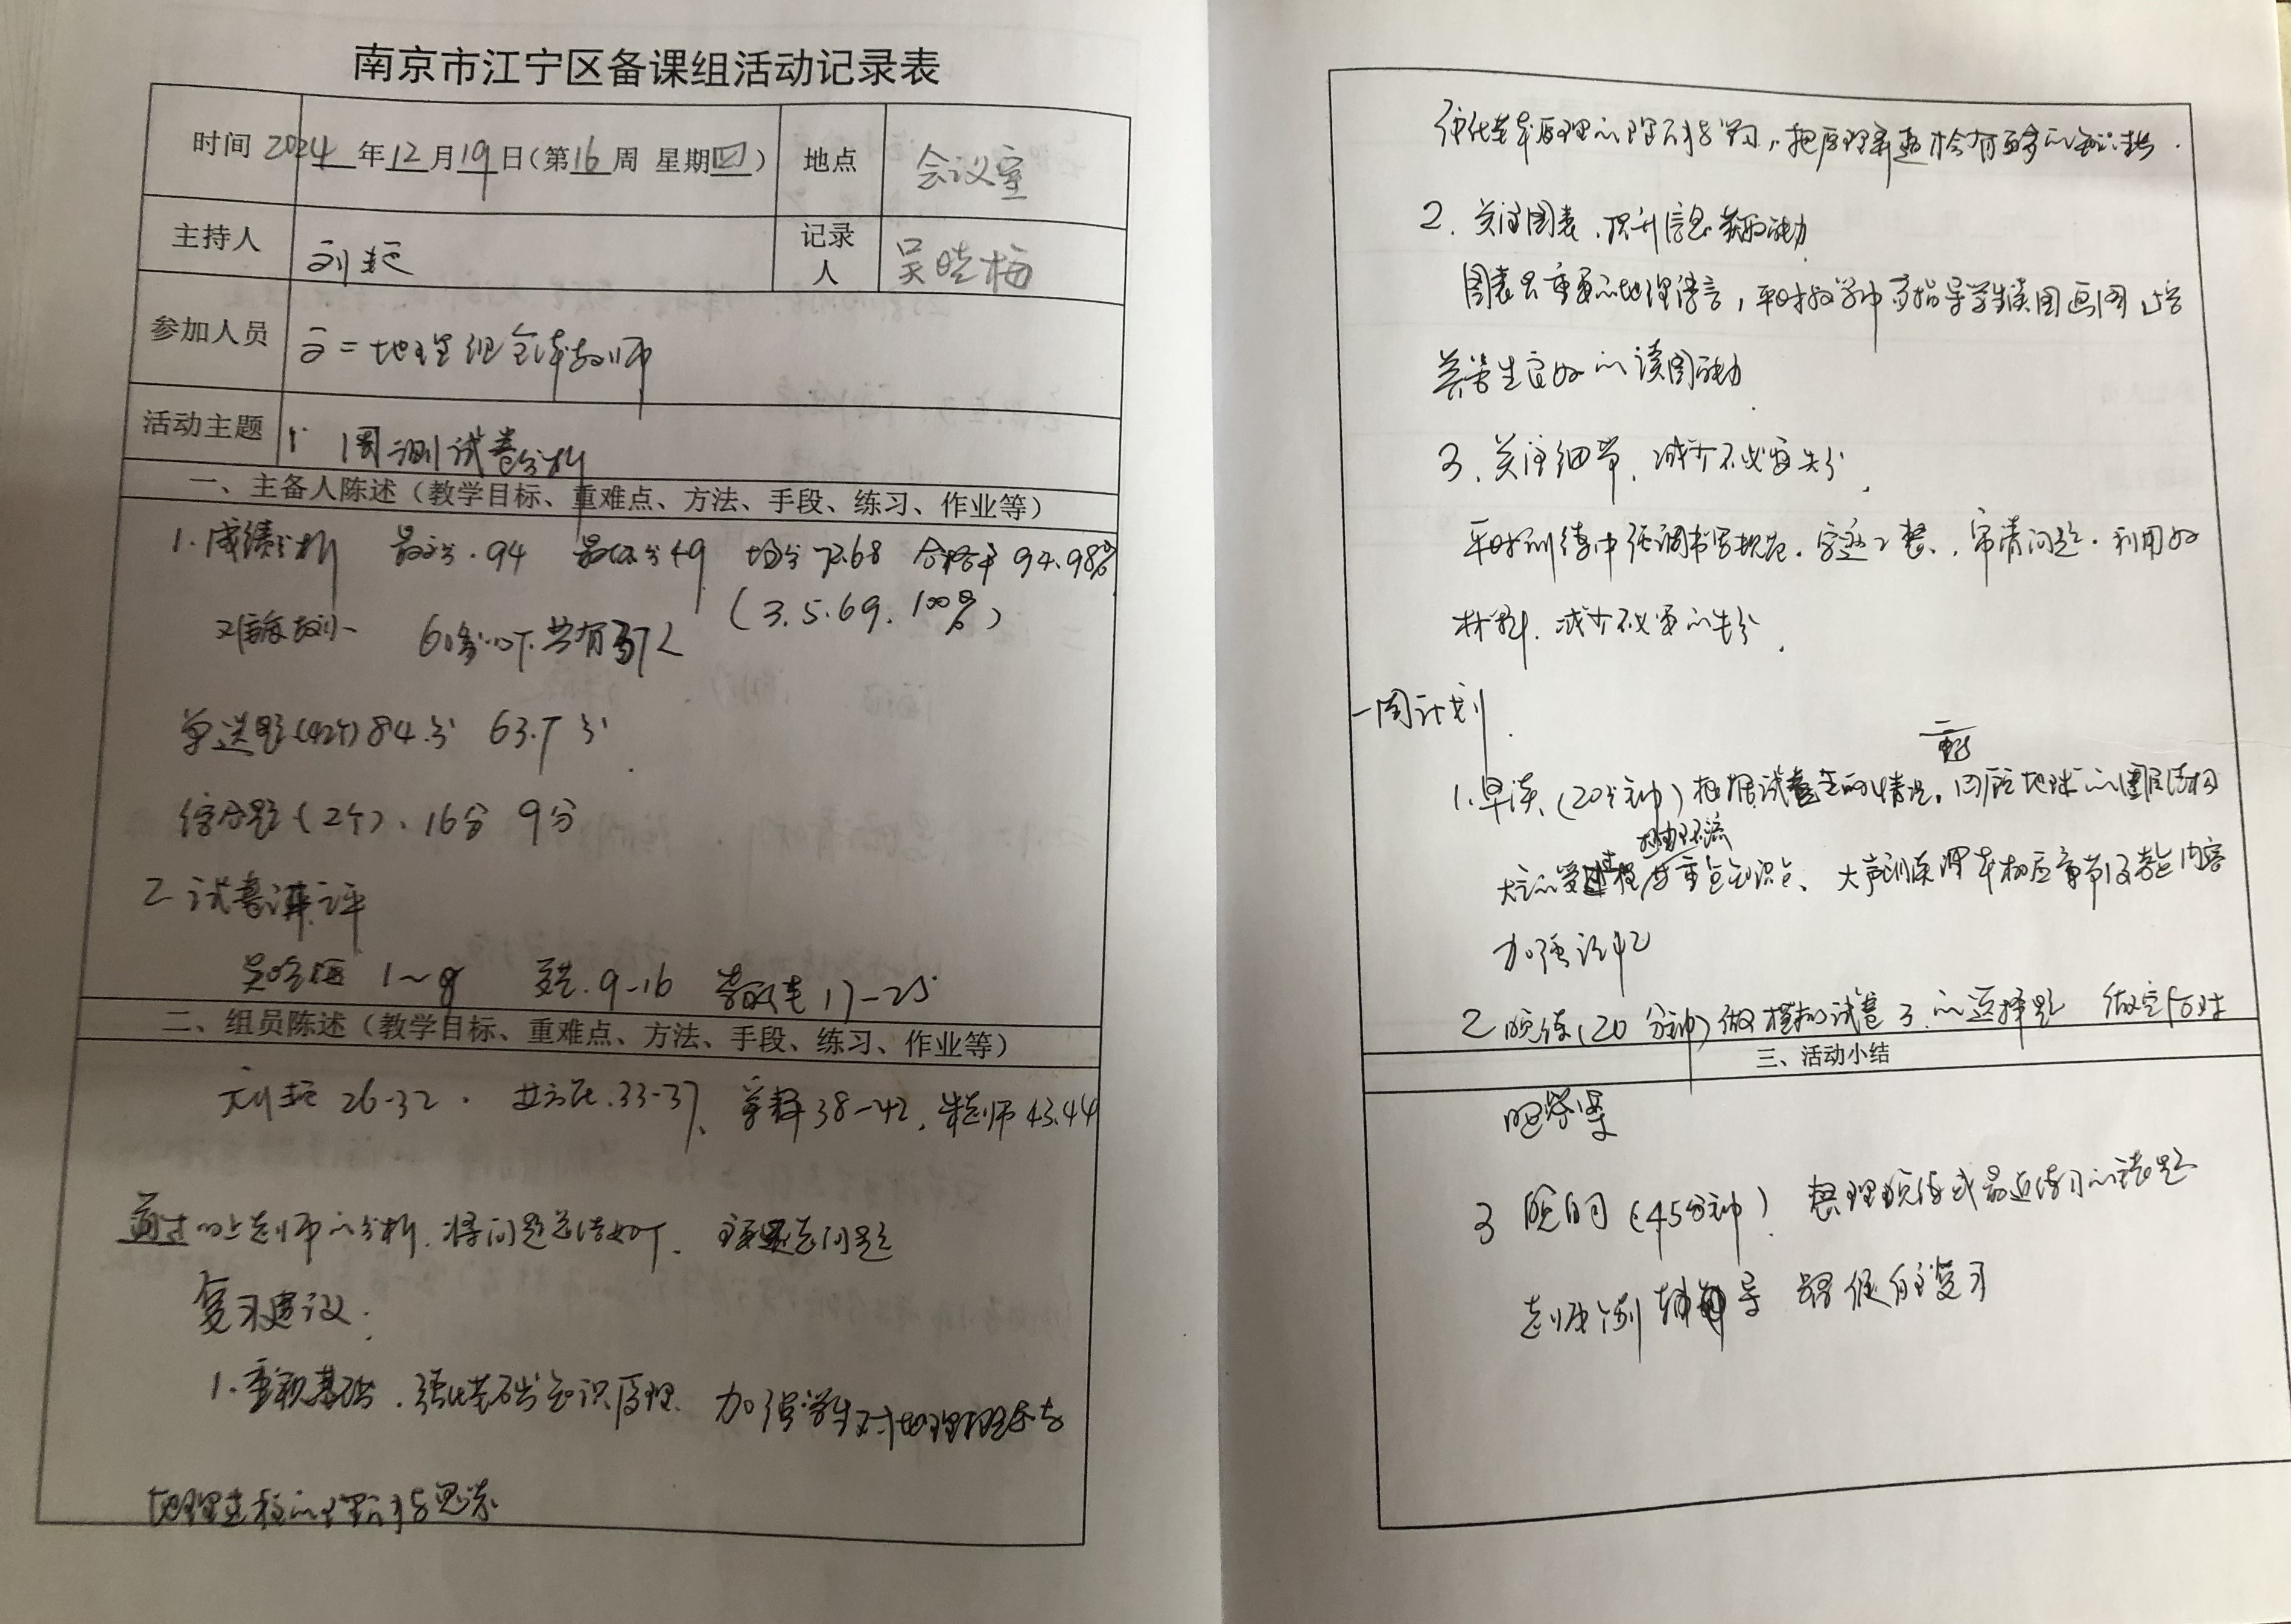 南京市江宁区备课组活动记录表
时间 2024年12月19日(第16周 星期四) 地点 会议室
主持人 刘艳 记录人 吴晓梅
参加人员 高二地理组全体教师
活动主题 周测试卷分析
一、主备人陈述（教学目标、重难点、方法、手段、练习、作业等）
1.成绩分析 最高分.94 最低分49 均分72.68 合格率94.98%
60分以下共有 人 (3.5.69.100%)
单选题(42个)84分 63.7分
综合题(2个)、16分 9分
2 试卷讲评
吴晓梅 1~8 9-16 17-25
二、组员陈述（教学目标、重难点、方法、手段、练习、作业等）
刘艳 26-32. 33-37、 38-42, 朱老师43.44
通过以上老师的分析.将问题总结如下.
复习建议:
1.重视基础.强化基础知识原理. 加强学生对地理概念与
地理过程的理解与思考
强化基本原理的理解与学习,
2.关注图表.提升信息获取能力
图表是重要的地理语言,平时教学中多指导学生读图画图
养学生良好的读图能力
3.关注细节.减少不必要失分.
平时训练中强调书写规范.字迹工整.,审清问题.利用好
材料.减少不必要的失分.
一周计划
1.早读(20分钟)根据试卷 情况,回顾地球的圈层结构
大气的受热过程 等重点知识点、大声朗读课本相应章节及考点内容
加强记忆
2 晚练(20分钟)做模拟试卷3的选择题 做完后对
三、活动小结
答案
3 晚自习(45分钟) 整理晚练或最近练习的错题
老师 辅导 督促自主复习